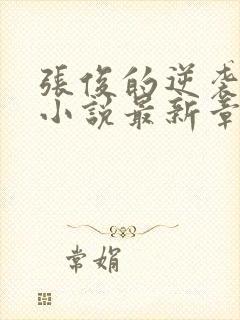 張俊的逆袭
小說最新章
常娟